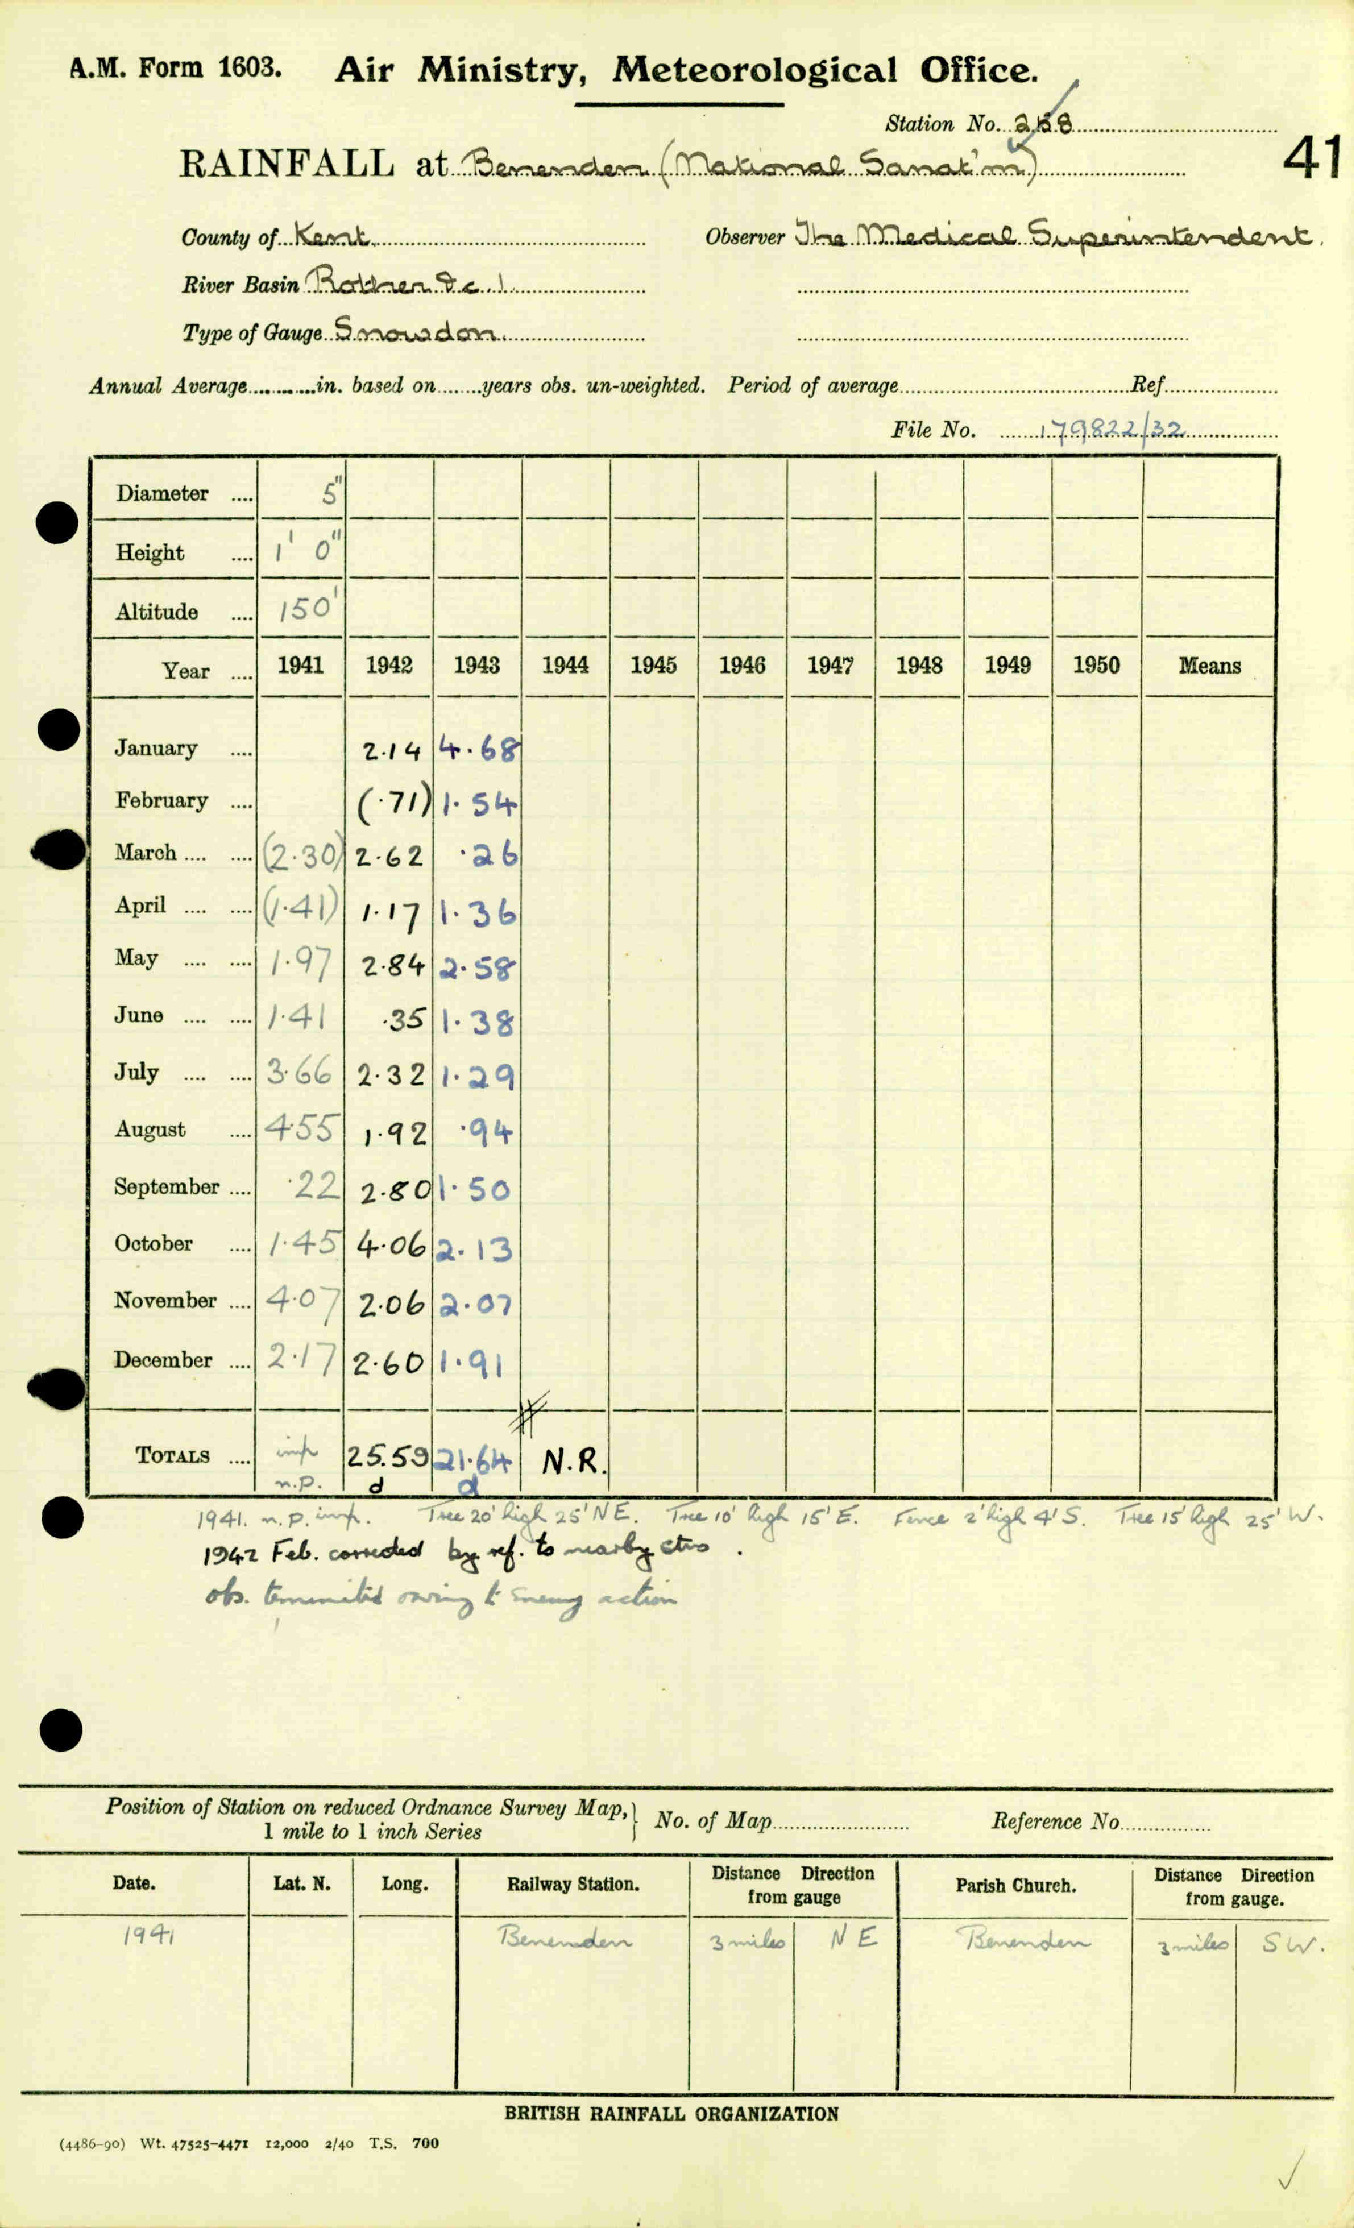 A.M. Form 1603. Air Ministry, Meteorological Office.
Station No. 258
RAINFALL at Benenden (National Sanat'm) 41
County of Kent. Observer The Medical Superintendent.
River Basin Rother &c. 1.
Type of Gauge Snowdon.
Annual Average in. based on years obs. un-weighted. Period of average Ref.
File No. 179822/32
Diameter .... 5"
Height .... 1' 0"
Altitude .... 150'
Year .... 1941 1942 1943 1944 1945 1946 1947 1948 1949 1950 Means
January .... 2.14 4.68
February .... (.71) 1.54
March .... .... (2.30) 2.62 .26
April .... .... (1.41) 1.17 1.36
May .... .... 1.97 2.84 2.58
June .... .... 1.41 .35 1.38
July .... .... 3.66 2.32 1.29
August .... 4.55 1.92 .94
September .... .22 2.80 1.50
October .... 1.45 4.06 2.13
November .... 4.07 2.06 2.07
December .... 2.17 2.60 1.91
TOTALS .... imp 25.59 21.64 N.R.
n.p. d d
1941. n.p. imp. Tree 20' high 25' NE. Tree 10' high 15' E. Fence 2' high 4' S. Tree 15' high 25' W.
1942 Feb. corrected by ref. to nearby stns.
obs. terminated owing to enemy action
Position of Station on reduced Ordnance Survey Map, 1 mile to 1 inch Series } No. of Map Reference No.
Date. Lat. N. Long. Railway Station. Distance Direction from gauge Parish Church. Distance Direction from gauge.
1941 Benenden 3 miles NE Benenden 3 miles SW.
BRITISH RAINFALL ORGANIZATION
(4486-90) Wt. 47525-4471 12,000 2/40 T.S. 700